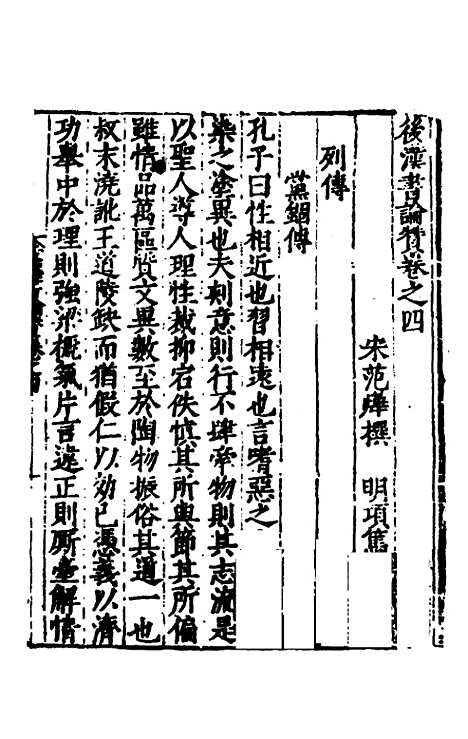 後漢書論贊卷之四
宋范曄撰　明項篤
列傳
黨錮傳
孔子曰性相近也習相遠也言嗜惡之
染之塗異也夫刻意則行不肆牽物則其志流是
以聖人導人理性裁抑宕佚慎其所與節其所偏
雖情品萬區質文異數至於陶物振俗其道一也
叔末澆訛王道陵缺而猶假仁以効己憑義以濟
功舉中於理則強梁褫氣片言違正則厮臺解情